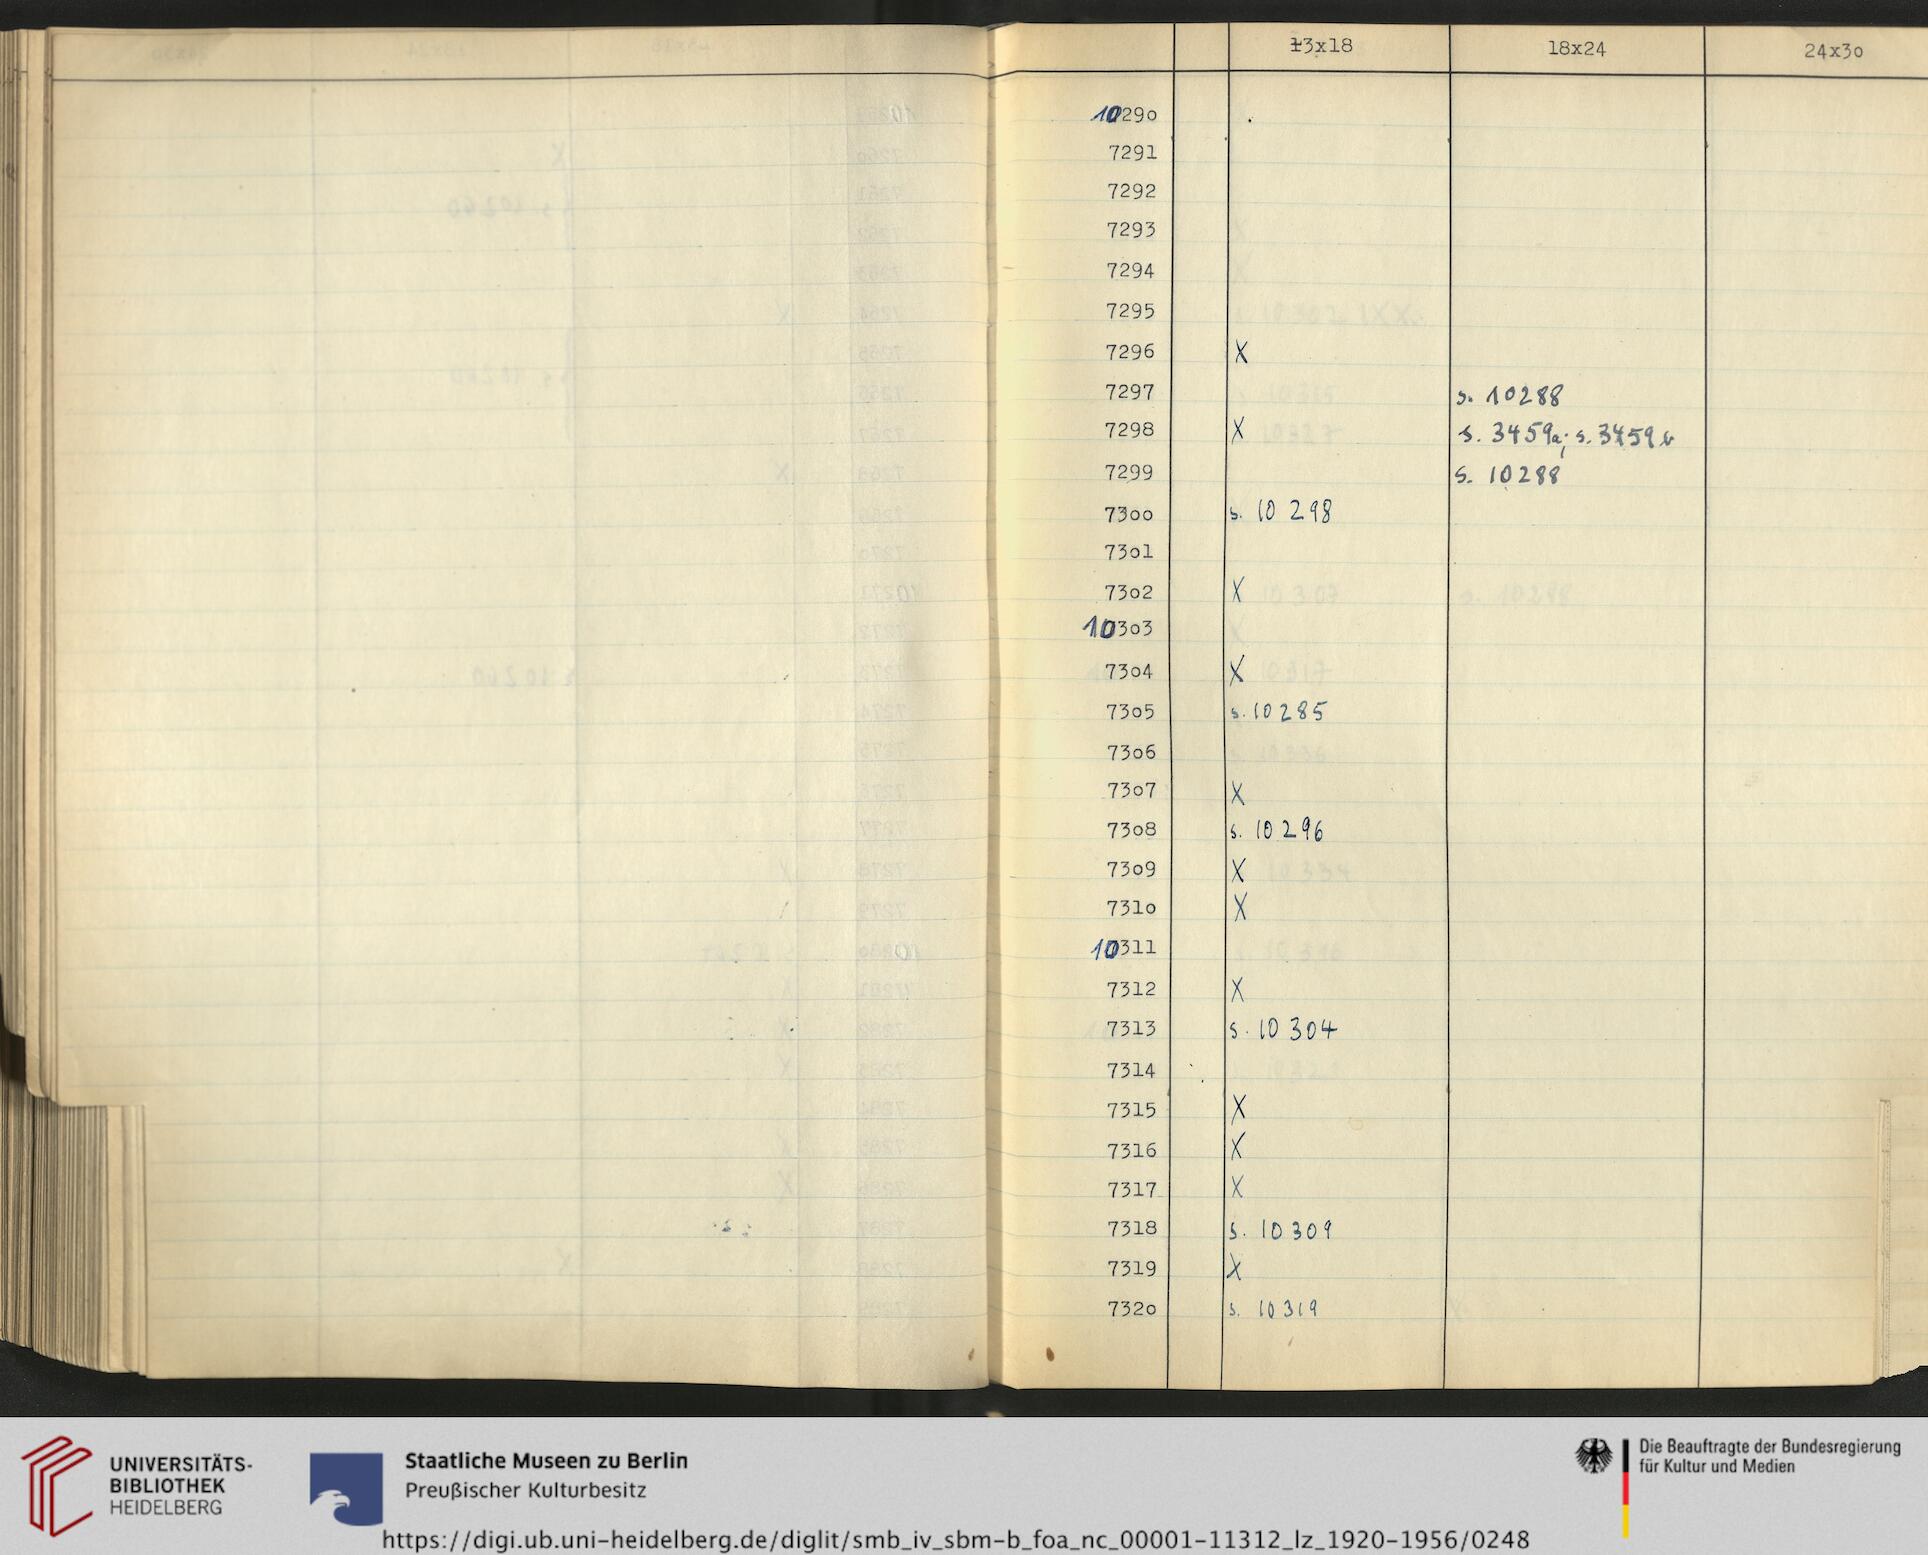 13x18 18x24 24x30
10290
7291
7292
7293
7294
7295
7296 X
7297 s. 10288
7298 X s. 3459a; s. 3459b
7299 s. 10288
7300 s. 10 298
7301
7302 X
10303
7304 X
7305 s. 10285
7306
7307 X
7308 s. 10296
7309 X
7310 X
10311
7312 X
7313 s. 10 304
7314
7315 X
7316 X
7317 X
7318 s. 10309
7319 X
7320 s. 10319
UNIVERSITÄTS-
BIBLIOTHEK
HEIDELBERG
Staatliche Museen zu Berlin
Preußischer Kulturbesitz
Die Beauftragte der Bundesregierung
für Kultur und Medien
https://digi.ub.uni-heidelberg.de/diglit/smb_iv_sbm-b_foa_nc_00001-11312_lz_1920-1956/0248